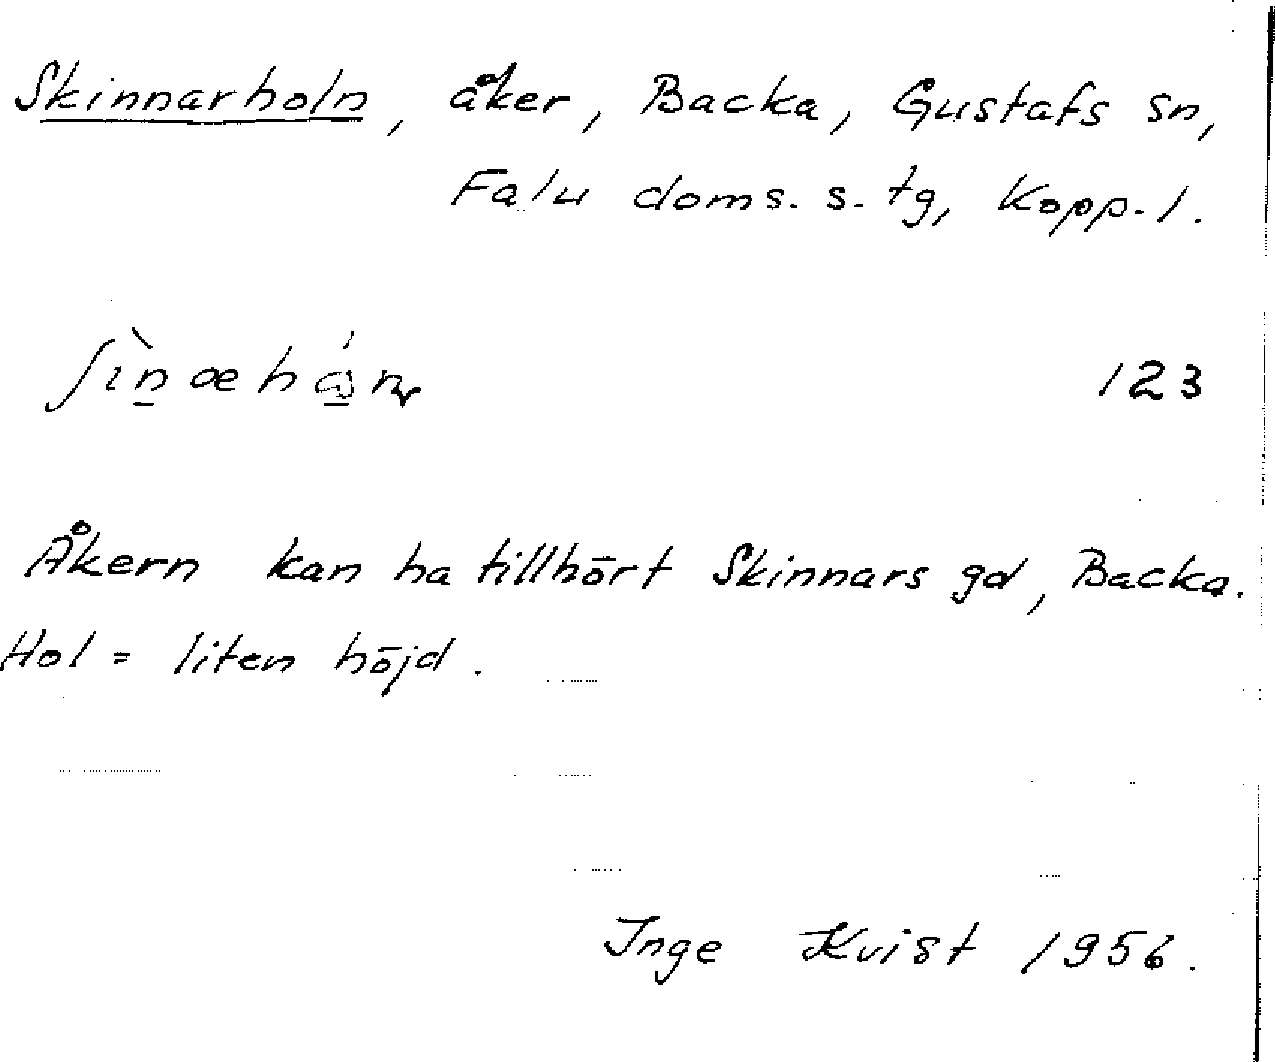 Skinnarholn, åker, Backa, Gustafs sn,
Falu doms. s. tg, Kopp. l.
123
Åkern kan ha tillhört Skinnars gd, Backa.
Hol = liten höjd.
Inge Kvist 1956.